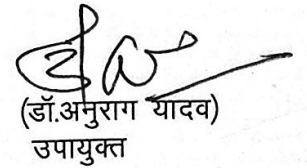 (डॉ.अनुराग यादव)
उपायुक्त